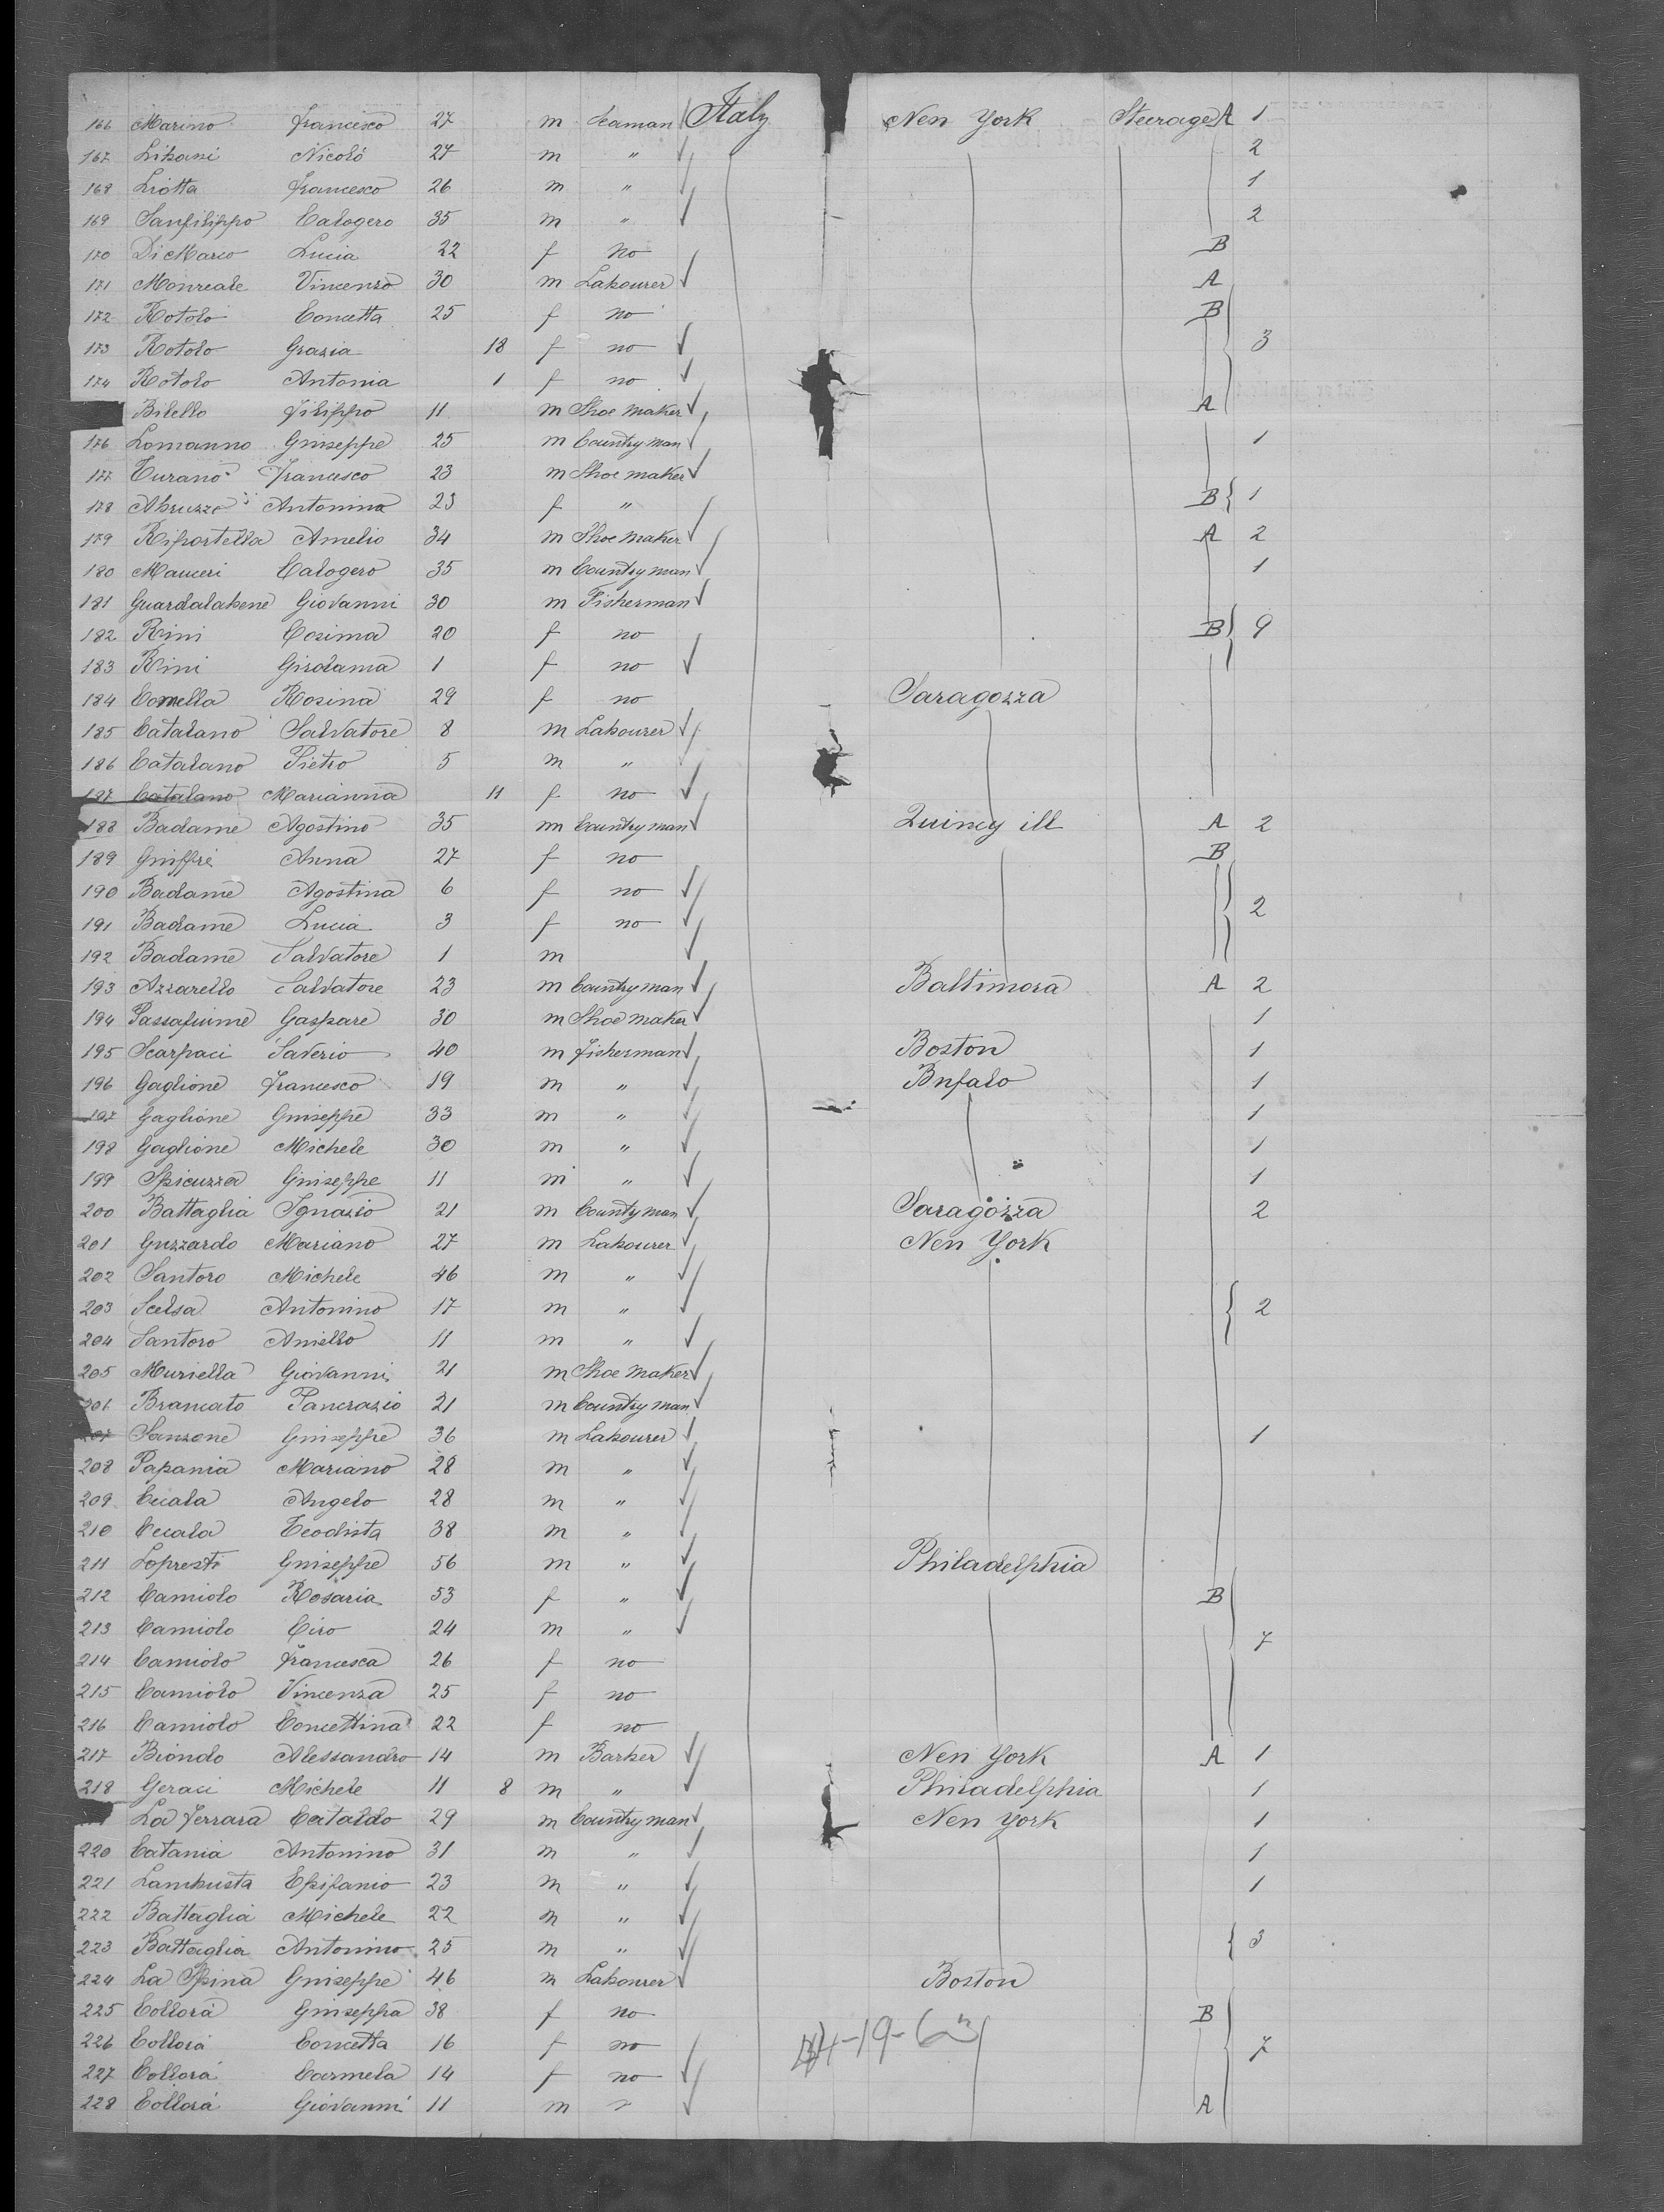 166 Marino Francesco 27 m Seaman Italy New York Steerage A 1
167 Libani Nicoló 27 m " 2
168 Liotta Francesco 26 m " 1
169 Sanfilippo Calogero 35 m " 2
170 Di Marco Lucia 22 f no B
171 Monreale Vincenzo 30 m Labourer A
172 Rotolo Concetta 25 f no B
173 Rotolo Grazia 18 f no 3
174 Rotolo Antonia 1 f no
Bilello Filippo 11 m Shoe maker A
176 Lomanno Giuseppe 25 m Countryman 1
177 Turano Francesco 23 m Shoe maker
178 Abruzzo Antonina 23 f " B 1
179 Riportella Amelio 34 m Shoe maker A 2
180 Mauceri Calogero 35 m Countryman 1
181 Guardalabene Giovanni 30 m Fisherman
182 Rini Cosima 20 f no B 9
183 Rini Girolama 1 f no
184 Rosina 29 f no Saragozza
185 Catalano Salvatore 8 m Labourer
186 Catalano Pietro 5 m "
187 Catalano Marianna 11 f no
188 Badame Agostino 35 m Countryman Quincy ill A 2
189 Giuffré Anna 27 f no B
190 Badame Agostina 6 f no 2
191 Badame Lucia 3 f no
192 Badame Salvatore 1 m
193 Azzarello Salvatore 23 m Countryman Baltimora A 2
194 Passafiume Gaspare 30 m Shoe maker 1
195 Scarpaci Saverio 40 m Fisherman Boston 1
196 Gaglione Francesco 19 m " Bufalo 1
197 Gaglione Giuseppe 33 m " 1
198 Gaglione Michele 30 m " 1
199 Spicuzza Giuseppe 11 m " 1
200 Battaglia Ignazio 21 m Countryman Saragozza 2
201 Guzzardo Mariano 27 m Labourer New York
202 Santoro Michele 46 m "
203 Scelsa Antonino 17 m " 2
204 Santoro Aniello 11 m "
205 Muriella Giovanni 21 m Shoe maker
206 Brancato Pancrazio 21 m Countryman
207 Sanzone Giuseppe 36 m Labourer 1
208 Papania Mariano 28 m "
209 Cucala Angelo 28 m "
210 Cucala Teodista 38 m "
211 Lopresti Giuseppe 56 m " Philadelphia
212 Camiolo Rosaria 53 f " B
213 Camiolo Ciro 24 m " 7
214 Camiolo Francesca 26 f no
215 Camiolo Vincenza 25 f no
216 Camiolo Concettina 22 f no
217 Biondo Alessandro 14 m Barber New York A 1
218 Geraci Michele 11 8 m " Philadelphia 1
La Ferrara Cataldo 29 m Countryman New York 1
220 Catania Antonino 31 m " 1
221 Lambusta Epifanio 23 m " 1
222 Battaglia Michele 22 m "
223 Battaglia Antonino 25 m " 3
224 La Spina Giuseppe 46 m Labourer Boston
225 Collorá Giuseppa 38 f no B
226 Collorá Concetta 16 f no 7
227 Collorá Carmela 14 f no
228 Collorá Giovanni 11 m " A